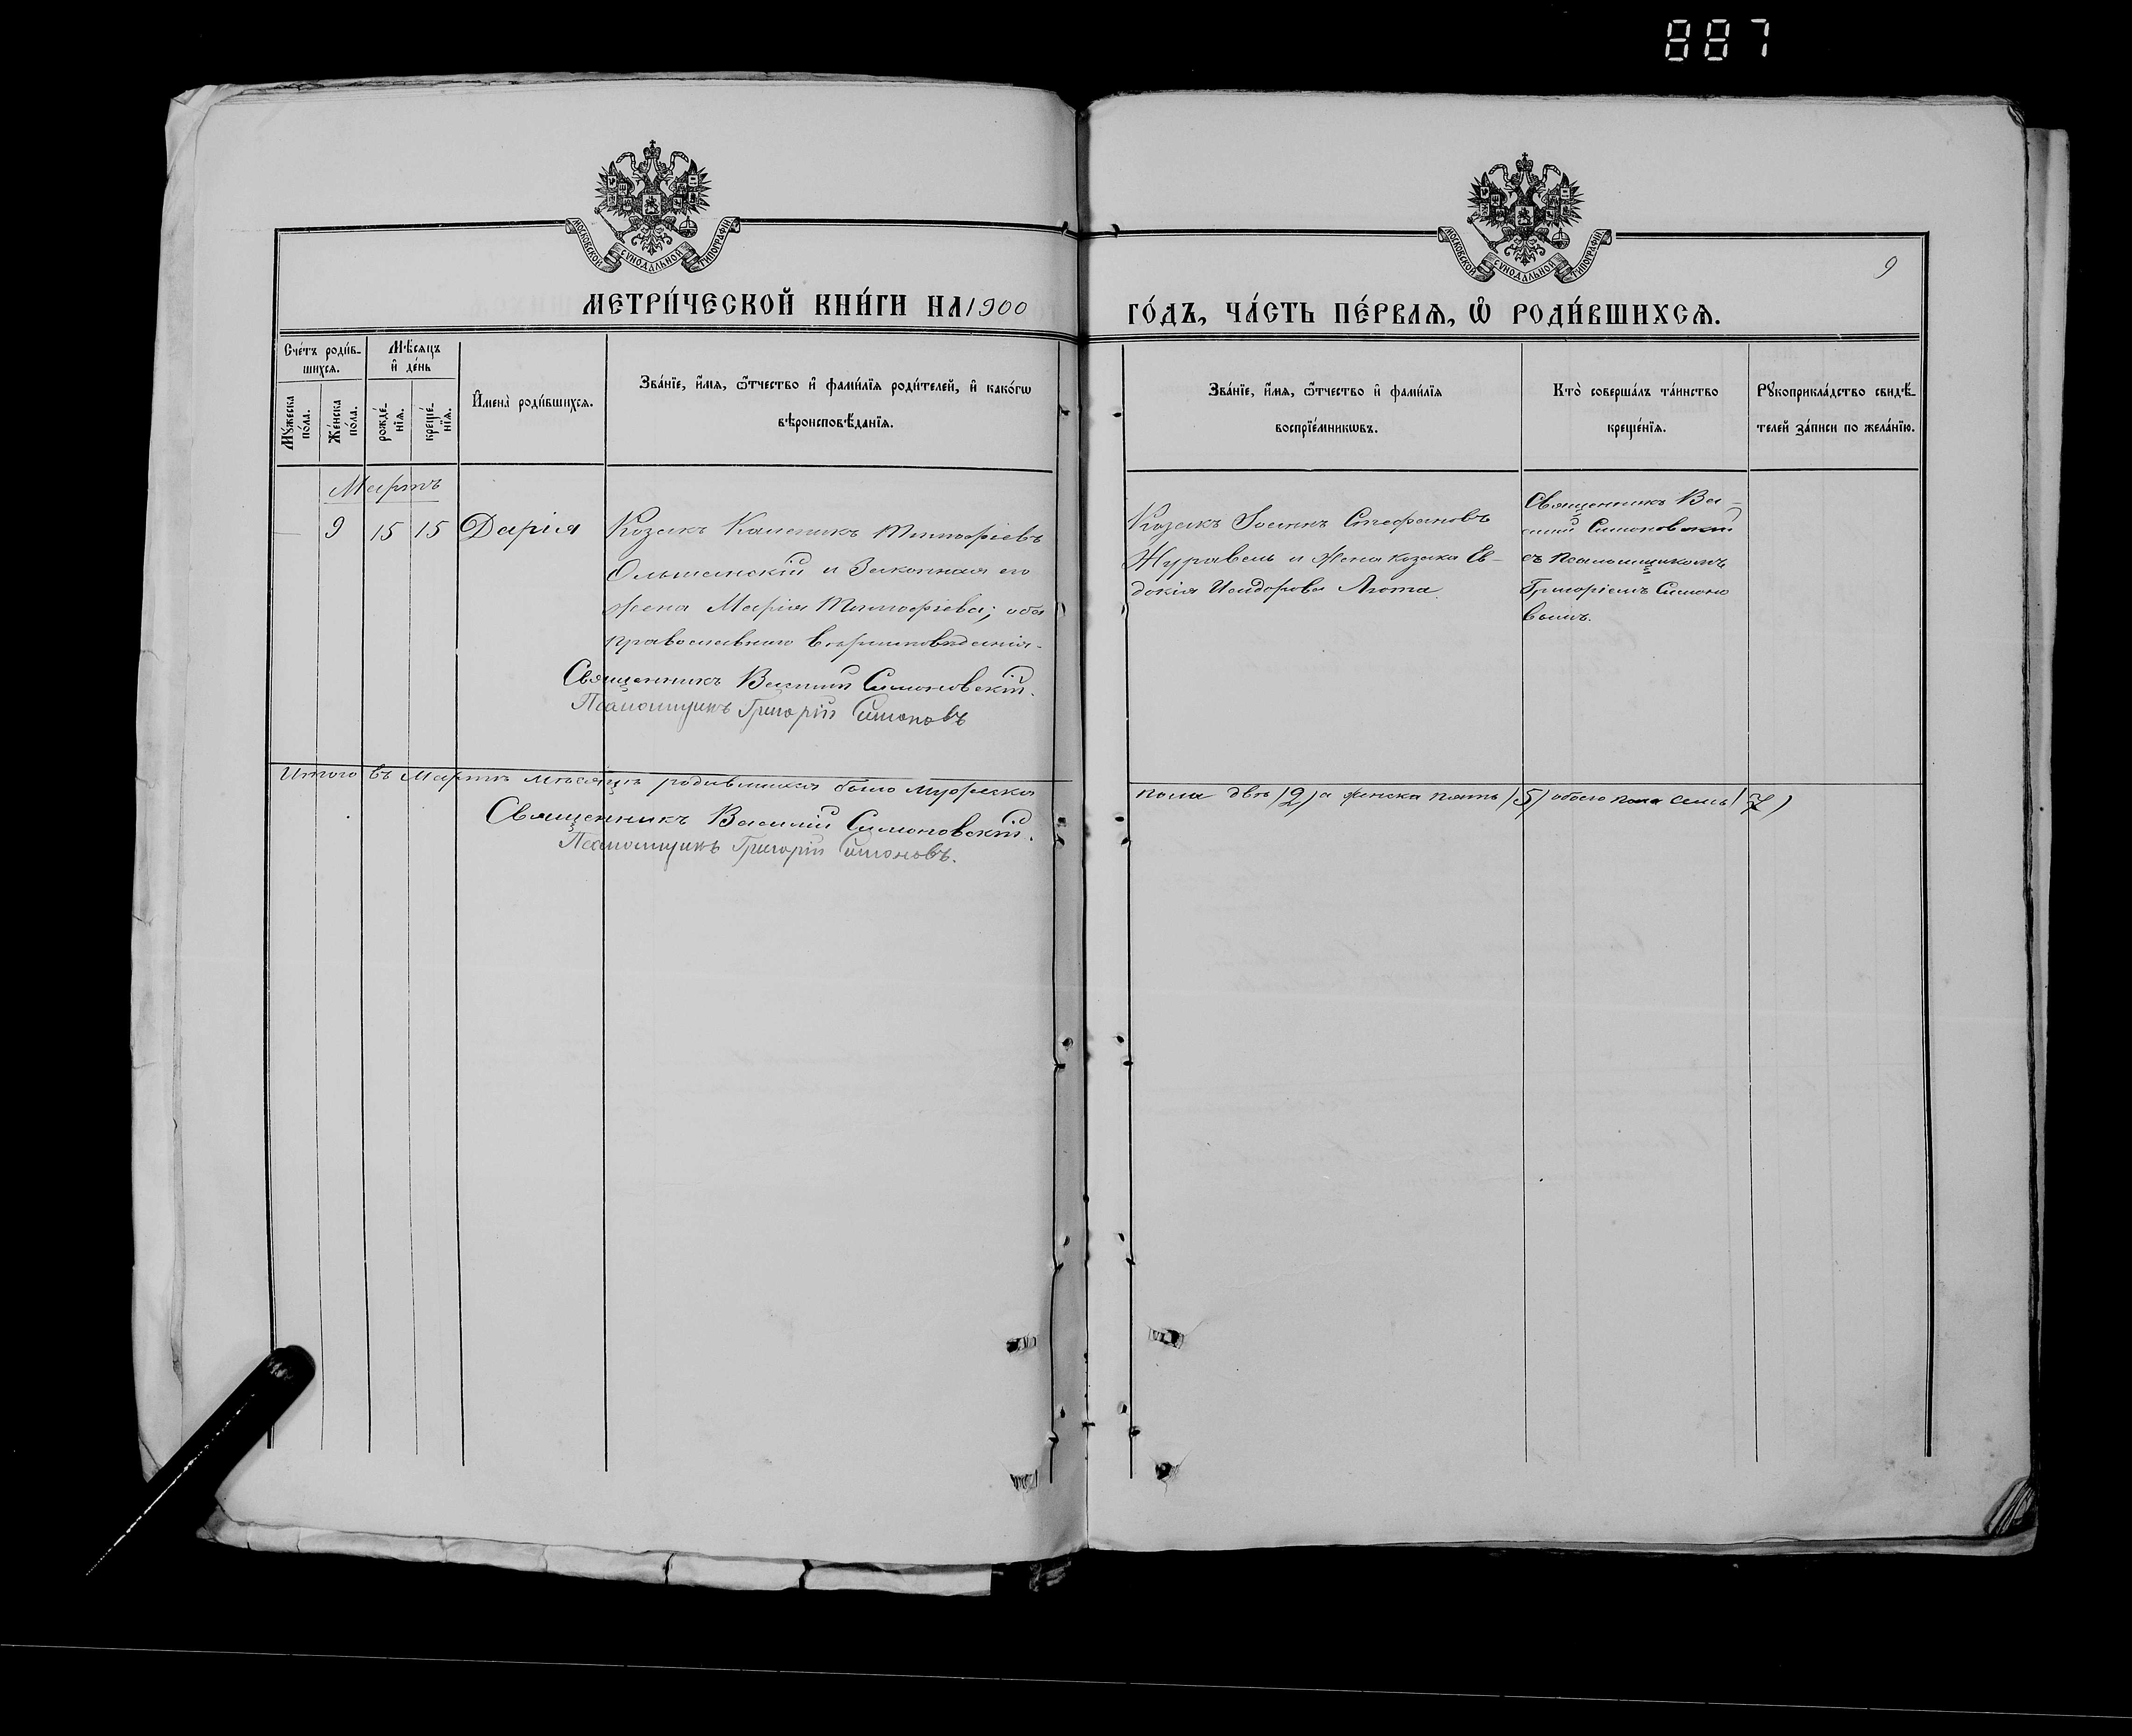 887
МОСКОВСКОЙ СѴНОДАЛЬНОЙ ТИПОГРАФІИ
МОСКОВСКОЙ СѴНОДАЛЬНОЙ ТИПОГРАФІИ
9
МЕТРИ́ЧЕСКОЙ КНИ́ГИ НА 1900
ГО́ДЪ, ЧА́СТЬ ПЕ́РВАѦ, Ѽ РОДИ́ВШИХСѦ.
Сче́тъ роди́в-
шихсѧ.
Мѣ́сѧцъ
и҆ де́нь
Му́жеска
по́ла.
Же́нска
по́ла.
рожде́-
нїѧ.
креще́-
нїѧ.
И҆мена̀ роди́вшихсѧ.
Зва́нїе, и҆́мѧ, ѻ҆́тчество и҆ фами́лїѧ роди́телей, и҆ како́гѡ
вѣроисповѣ́данїѧ.
Зва́нїе, и҆́мѧ, ѻ҆́тчество и҆ фами́лїѧ
воспрїе́мникѡвъ.
Кто̀ соверша́лъ та́инство
креще́нїѧ.
Рꙋкоприкла́дство свидѣ́-
телей за́писи по жела́нїю.
Мартъ
— 9 15 15 Дарія
Козакъ Каленикъ Тимофіевъ
Ольшанскій и Законная его
жена Марія Тимофіева; оба
православнаго вѣроисповѣданія.
Священникъ Василій Симоновскій.
Псаломщикъ Григорій Симоновъ
Козакъ Іоаннъ Стефановъ
Журавель и жена козака Ев-
докія Исидорова Люта.
Священникъ Ва-
силій Симоновскій
съ псаломщикомъ
Григоріемъ Симоно
вымъ.
Итого въ Мартѣ мѣсяцѣ родившихся было мужеска
пола два (2) а женска пять (5) обоего пола семь (7)
Священникъ Василій Симоновскій.
Псаломщикъ Григорій Симоновъ.